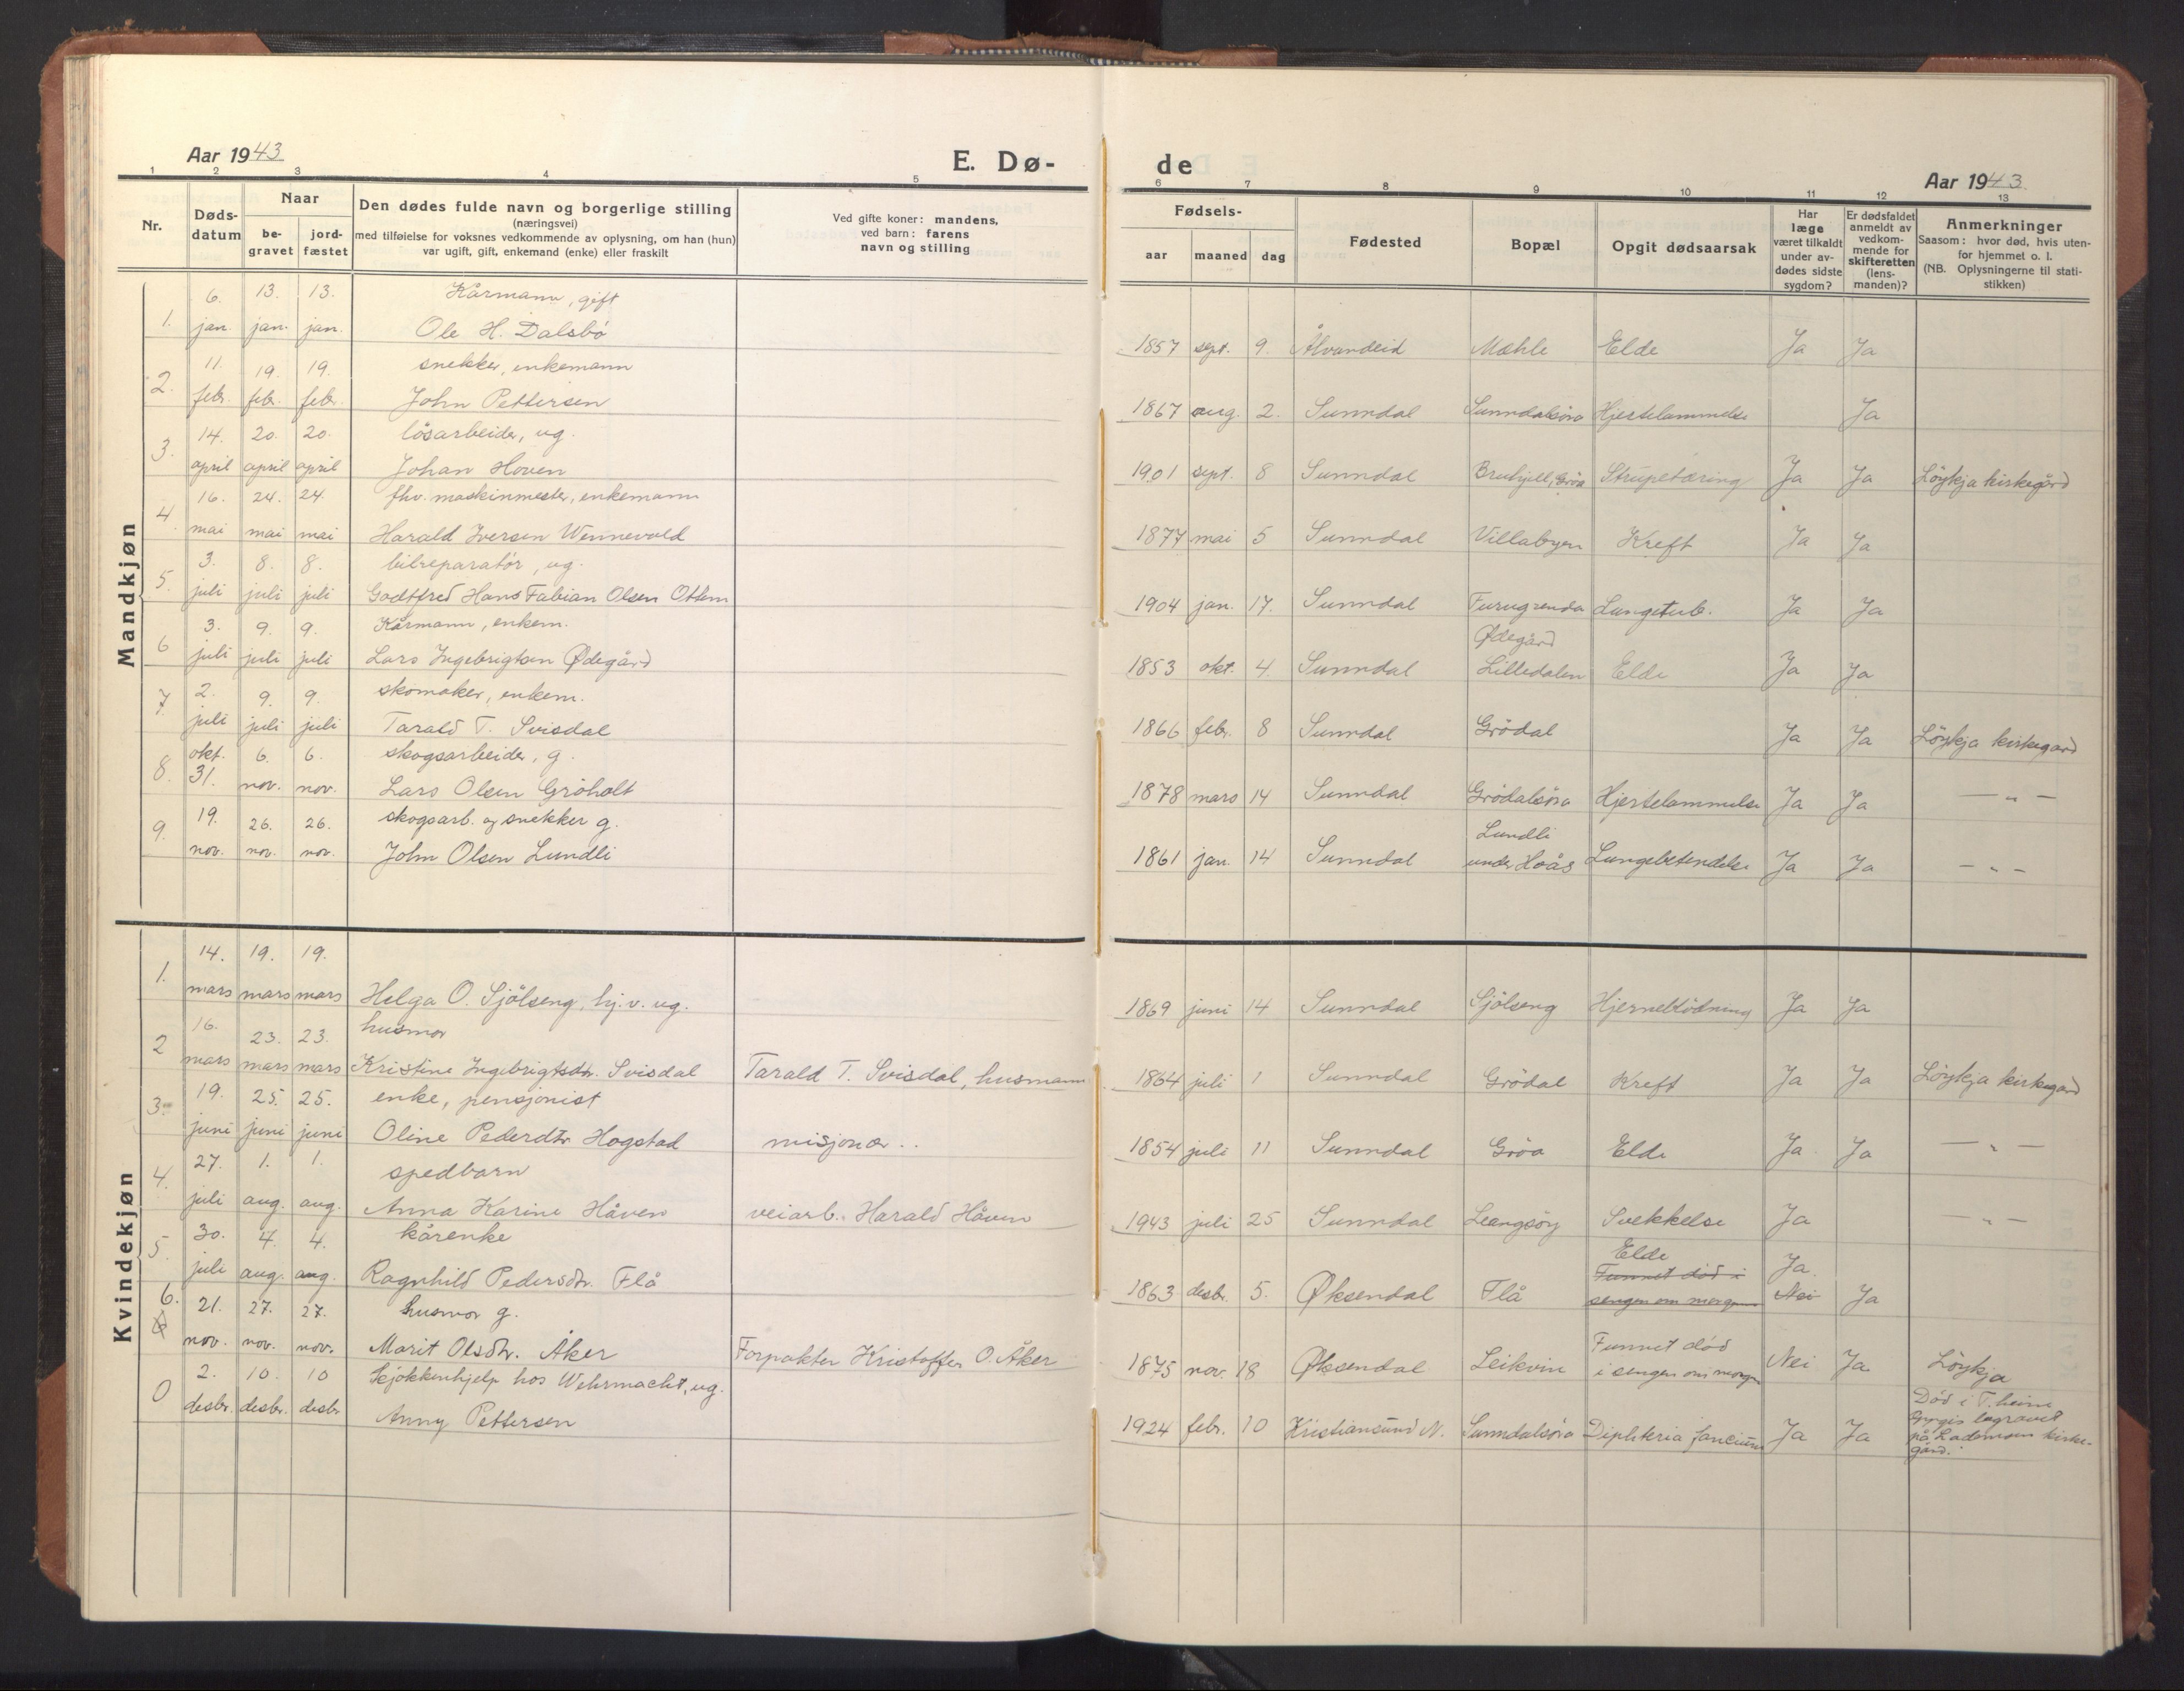 Aar 1943
E. Dø-
de
Aar 1943.
1 2 3 4 5
6 7 8 9 10 11 12 13
Nr.
Døds-
datum
Naar
be-
gravet
jord-
fæstet
Den dødes fulde navn og borgerlige stilling
(næringsvei)
med tilføielse for voksnes vedkommende av oplysning, om han (hun)
var ugift, gift, enkemand (enke) eller fraskilt
Ved gifte koner: mandens,
ved barn: farens
navn og stilling
Fødsels-
aar maaned dag
Fødested
Bopæl
Opgit dødsaarsak
Har
læge
været tilkaldt
under av-
dødes sidste
sygdom?
Er dødsfaldet
anmeldt av
vedkom-
mende for
skifteretten
(lens-
manden)?
Anmerkninger
Saasom: hvor død, hvis uten-
for hjemmet o. l.
(NB. Oplysningerne til stati-
stikken)
Mandkjøn
6. 13. 13. Kårmann, gift
1. jan. jan. jan. Ole H. Dalsbö
1857 sept. 9. Ålvundeid Mæhle Elde Ja Ja
11. 19. 19. snekker, enkemann
2. febr. feb. febr. John Pettersen
1867 aug. 2. Sunndal Sunndalsöra Hjertelammelse Ja
14. 20. 20. lösarbeider, ug.
3. april april april Johan Hoven
1901 sept. 8 Sunndal Gröa Strupetæring Ja Ja Löykja kirkegård
16. 24. 24. fhv. maskinmester, enkemann
4. mai mai mai Harald Iversen Wennevold
1877 mai 5 Sunndal Villabyen Kreft Ja Ja
3. 8. 8. bilreparatör, ug.
5. juli juli juli Godtfred Hans Fabian Olsen Ottem
1904 jan. 17. Sunndal Furugrenda Lungetub. Ja Ja
3. 9. 9. Kårmann, enkem.
6 juli juli juli Lars Ingebrigtsen Ødegård
Ødegård
1853 okt. 4. Sunndal Lilledalen Elde Ja Ja
2. 9. 9. skomaker, enkem.
7. juli juli juli Tarald T. Svisdal
1866 febr. 8 Sunndal Grödal Ja Ja Löykja kirkegård
okt. 6. 6. skogsarbeider, g.
8. 31. nov. nov. Lars Olsen Gröholt
1878 mars 14 Sunndal Grödalsöra Hjertelammelse Ja Ja — " —
19. 26. 26. skogsarb. og snekker g.
9. nov. nov. nov. John Olsen Lundli
Lundli
1861 jan. 14 Sunndal under Hoås Lungebetendelse Ja Ja — " —
Kvindekjøn
14. 19. 19.
1. mars mars mars Helga O. Sjölseng, hj.v. ug.
1869 juni 14 Sunndal Sjölseng Hjerneblödning Ja Ja
16. 23. 23. husmor
2 mars mars mars Kristine Ingebrigtsdtr. Svisdal Tarald T. Svisdal, husmann
1864 juli 1 Sunndal Grödal Kreft Ja Ja Löykja kirkegård
19. 25. 25. enke, pensjonist
3. juni juni juni Oline Pederdtr Hogstad misjonær..
1854 juli 11 Sunndal Gröa Elde Ja Ja — " —
27. 1. 1. spedbarn
4. juli aug. aug. Anna Karine Håven veiarb. Harald Håven
1943 juli 25 Sunndal Svekkelse Ja — " —
30. 4. 4. kårenke
5. juli aug. aug. Ragnhild Pedersdtr. Flå
Elde Ja.
Funnet död i
1863 desbr. 5. Øksendal Flå sengen om morgenen Nei Ja
6. 21. 27. 27. husmor g.
6 nov. nov. nov. Marit Olsdtr. Åker Forpakter Kristoffer O. Åker
Funnet död
1875 nov. 18 Øksendal Leikvin i sengen om morgen Nei Ja Löykja
2. 10. 10 Kjökkenhjelp hos Wehrmacht, ug.
0 desbr. desbr. desbr Anny Pettersen
Död i T.heim
begravet
1924 febr. 10 Kristiansund N. Sunndalsöra Diphteria faucium Ja Ja på Lademoen kirke-
gård.